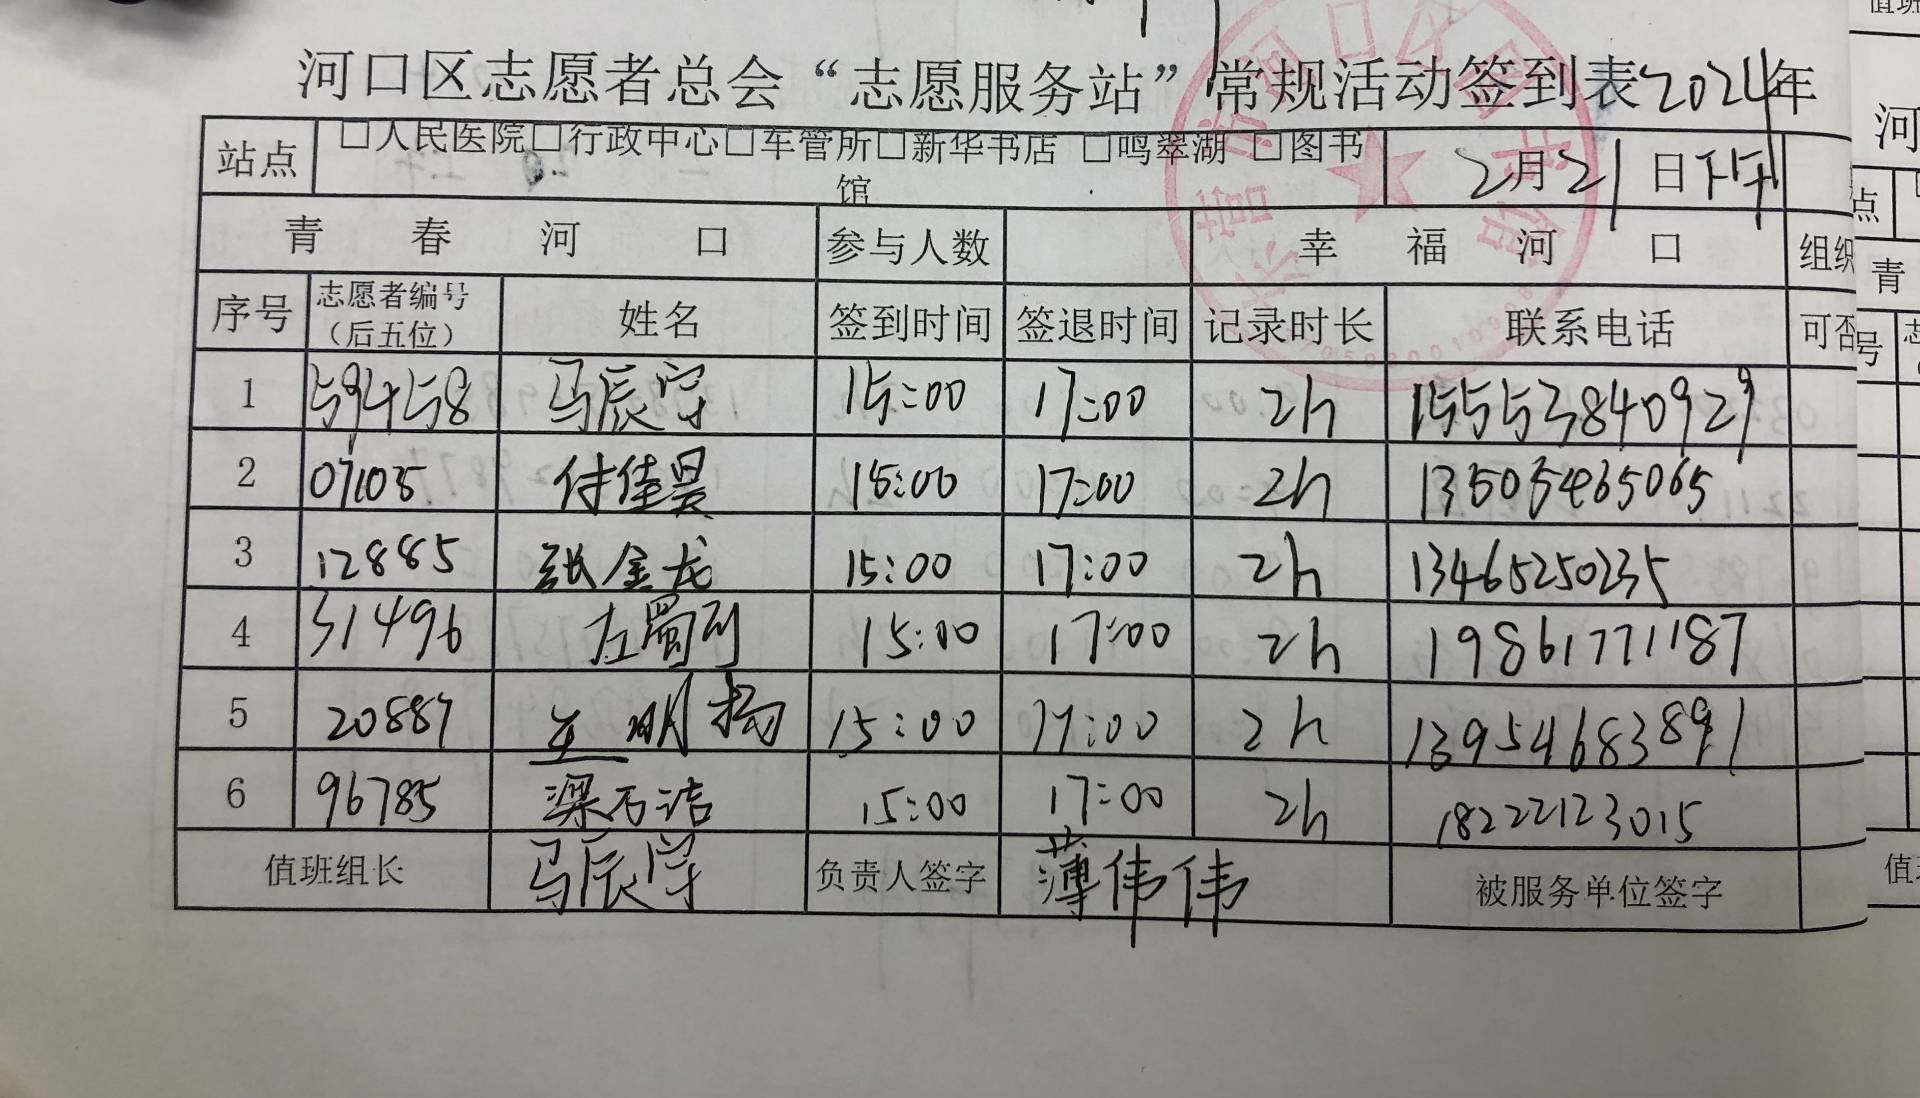 河口区志愿者总会“志愿服务站”常规活动签到表2024年
站点 □人民医院□行政中心□车管所□新华书店 □鸣翠湖 □图书馆 2月21日下午
青春河口 参与人数 幸福河口 组织
序号 志愿者编号（后五位） 姓名 签到时间 签退时间 记录时长 联系电话 可否
1 59458 马辰宇 15:00 17:00 2h 15553840929
2 07105 付佳昊 15:00 17:00 2h 13505465065
3 12885 张金龙 15:00 17:00 2h 13465250235
4 31496 左蜀 15:00 17:00 2h 19861771187
5 20887 王明扬 15:00 17:00 2h 13954683891
6 96785 梁洁 15:00 17:00 2h 18222123015
值班组长 马辰宇 负责人签字 薄伟伟 被服务单位签字
河
点
青
号